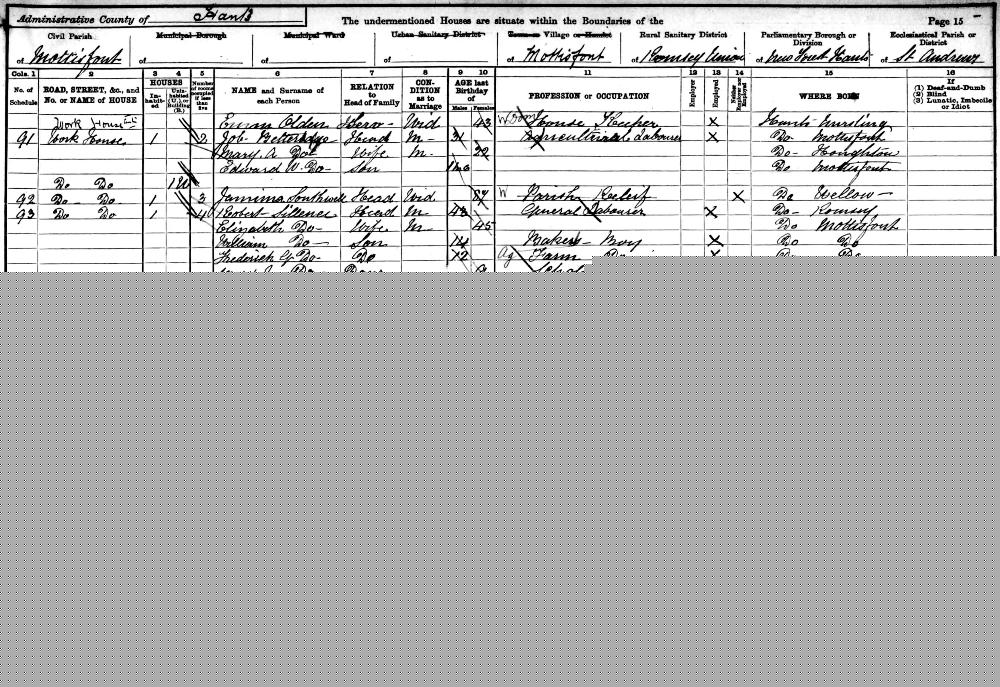 Administrative County of Hants
The undermentioned Houses are situate within the Boundaries of the
Page 15
Civil Parish of Mottisfont
Municipal Borough of
Municipal Ward of
Urban Sanitary District of
Town or Village or Hamlet of Mottisfont
Rural Sanitary District of Romsey Union
Parliamentary Borough or Division of
Ecclesiastical Parish or District of St Andrew
Cols. 1 2 3 4 5 6 7 8 9 10 11 12 13 14 15 16
No. of Schedule
ROAD, STREET, &c., and No. or NAME of HOUSE
HOUSES
Inhabited
Uninhabited (U.) or Building (B.)
Number of rooms occupied if less than five
NAME and Surname of each Person
RELATION to Head of Family
CONDITION as to Marriage
AGE last Birthday of
Males Females
PROFESSION or OCCUPATION
Employer
Employed
Neither Employer nor Employed
WHERE BORN
If (1) Deaf-and-Dumb (2) Blind (3) Lunatic, Imbecile or Idiot
Work House Emma Olden Serv- Wid 43 House Keeper X Hants Nursling
91 Work House 1 2 Job Head M- 31 Agricultural Labourer X Do Mottisfont
Mary A Do- Wife M- 22 Do- Houghton
Edward W. Do- Son 1 mo Do Mottisfont
Do Do 1 U
92 Do- Do 1 3 Jamima Southwell Head Wid 87 W Parish Releif X Do Wellow-
93 Do Do 1 4 Robert Sillence Head M- General Labourer X Do- Romsey
Elizabeth Do- Wife M- 45 Do Mottisfont
William Do- Son 14 Bakers Boy X Do Do
Frederick G Do- Do 12 Ag Farm Do X Do Do